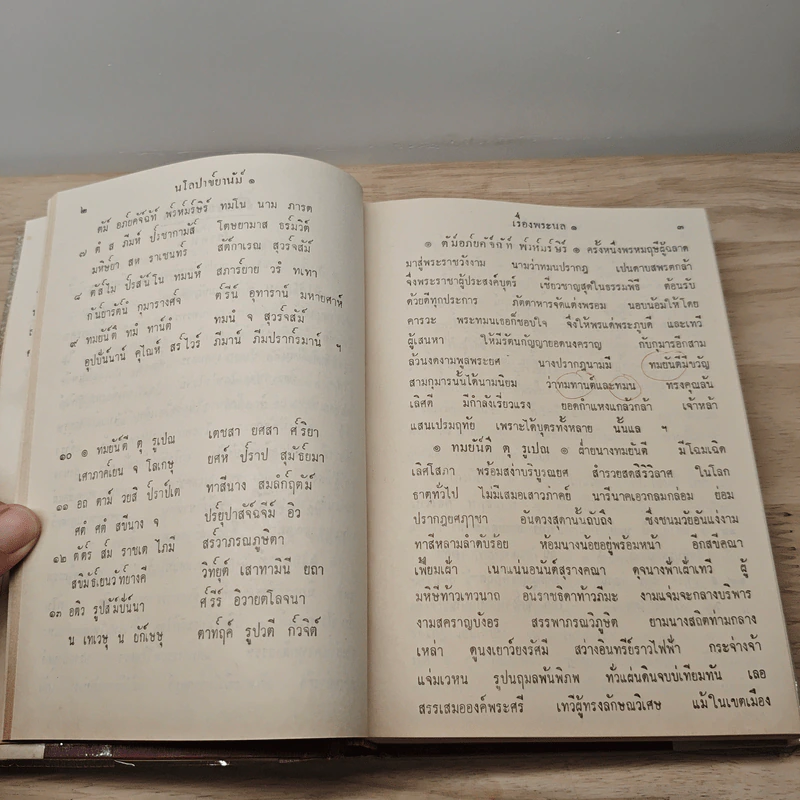 ๒
นโลปาขฺยานัม์ ๑
ตมฺ อภฺยคัจฺฉัท์ พฺรัหฺมร์ษิร์ ทมโน นาม ภารต
๗ ตํ ส ภีมห์ ปฺรชากามัส์ โตษยามาส ธรฺมวิต์
มหิษฺยา สห ราเชนทฺร์ สัตฺกาเรณ สุวรฺจสัม์
๘ ตัสฺไม ปฺรสันฺโน ทมนห์ สภารฺยาย วรํ ทเทา
กันฺยารัตฺนํ กุมารางศฺจ ตฺรีน์ อุทาราน์ มหายศาห์
๙ ทมยันฺตีํ ทมํ ทานฺตํ ทมนํ จ สุวรฺจสัม์
อุปปันฺนาน์ คุไณห์ สรฺไวร์ ภีมาน์ ภีมปรากฺรมาน์ ฯ
๑๐ ๑ ทมยันฺตี ตุ รูเปณ เตชสา ยศสา ศฺริยา
เสาภาคฺเยน จ โลเกษุ ยศห์ ปฺราป สุมัธฺยมา
๑๑ อถ ตามฺ วยสิ ปฺราปฺเต ทาสีนาง สมลังฺกฤตัม์
ศตํ ศตํ สขีนาง จ ปรฺยุปาสัจฺฉจีมฺ อิว
๑๒ ตัตฺร สฺม ราชเต ไภมี สรฺวาภรณภูษิตา
สขีมัธฺเยนวัทฺยางคี วิทฺยุตฺ เสาทามินี ยถา
๑๓ อตีว รูปสัมฺปันฺนา ศฺรีร์ อิวายตโลจนา
น เทเวษุ น ยักฺเษษุ ตาทฺฤคฺ รูปวตี กฺวจิต์
เรื่องพระนล ๑
๓
๑ ตัมอภฺยคัจฺฉัท์ พฺรัหฺมร์ษิร์ ๑ ครั้งหนึ่งพรหมฤษีผู้ฉลาด
มาสู่พระราชวังงาม นามว่าทมนปรากฏ เปนดาบสพรตกล้า
จึ่งพระราชาผู้ประสงค์บุตร์ เชี่ยวชาญสุดในธรรมพิธี ต้อนรับ
ด้วยดีทุกประการ ภัตตาหารจัดแต่งพรอม นอบน้อมให้โดย
คารวะ พระทมนเธอก็ชอบใจ จึ่งให้พรแด่พระภูบดี และเทวี
ผู้เสนหา ให้มีรัตน์กัญญายอดนงคราญ กับกุมารอีกสาม
ล้วนงดงามพูลพระยศ นางปรากฏนามมี ทมยันตีมีขวัญ
สามกุมารนั้นได้นามนิยม ว่าทมทานต์และทมน ทรงคุณล้น
เลิศดี มีกำลังเรี่ยวแรง ยอดกำแหงแกล้วกล้า เจ้าหล้า
แสนเปรมฤทัย เพราะได้บุตรทั้งหลาย นั้นแล ฯ
๑ ทมยันฺตี ตุ รูเปณ ๑ ฝ่ายนางทมยันตี มีโฉมเฉิด
เลิศโสภา พร้อมสง่าบริบูรณยศ สำรวยสดสิริวิลาศ ในโลก
ธาตุทั่วไป ไม่มีเสมอเสาวภาคย์ นารีนาคเอวกลมกล่อม ย่อม
ปรากฏยศฦๅชา อันดวงสุดานั้นถับถึง ซึ่งชนมวัยอันแง่งาม
ทาสีหลามลำดับร้อย ห้อมนางน้อยอยู่พร้อมหน้า อีกสขีคณา
เพี้ยมเฝ้า เนาแน่นอนันต์สุรางคณา ดุจนางฟ้าเฝ้าเทวี ผู้
มหิษีท้าวเทวนาถ อันราชธิดาท้าวภีมะ งามแจ่มจะกลางบริพาร
งามสคราญบังอร สรรพาภรณวิภูษิต ยามนางสถิตท่ามกลาง
เหล่า ดูนงเยาว์ยงรัศมี สว่างอินทรีย์ราวไฟฟ้า กระจ่างจ้า
แจ่มเวหน รูปนฤมลพ้นพิภพ ทั่วแผ่นดินจบบ่เทียมทัน เลอ
สรรเสมอองค์พระศรี เทวีผู้ทรงลักษณวิเศษ แม้ในเขตเมือง